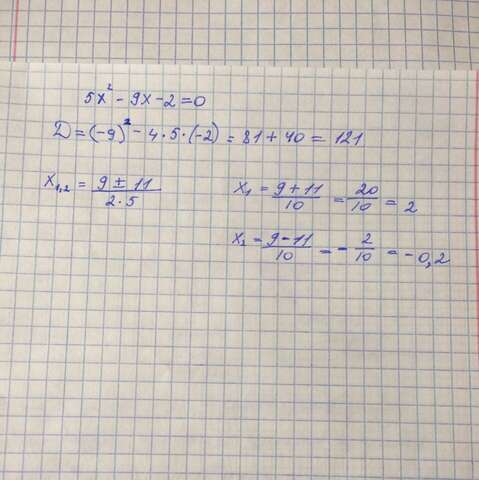 5x² - 9x - 2 = 0
D = (-9)² - 4·5·(-2) = 81 + 40 = 121
x₁,₂ = (9 ± 11)/(2·5)
x₁ = (9+11)/10 = 20/10 = 2
x₂ = (9-11)/10 = -2/10 = -0,2